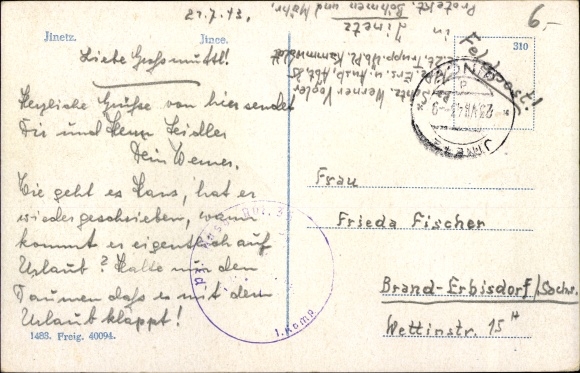 21.7.43.
6.-
Jinetz.
Jince.
Liebe Großmuttl!
Herzliche Grüße von hier sendet
Dir und Herrn Seidler
Dein Werner.
Wie geht es Hans, hat er
wiedergeschrieben, wann
kommt er eigentlich auf
Urlaub? Halte mir den
Daumen daß es mit dem
Urlaub klappt!
1483. Freig. 40094.
Werner Vogler
in
Jinetz
Protekt. Böhmen und Mähr.
Feldpost!
310
23.VII.43-9
JINETZ
1. Komp.
Frau
Frieda Fischer
Brand-Erbisdorf/Sachs.
Wettinstr. 15 H